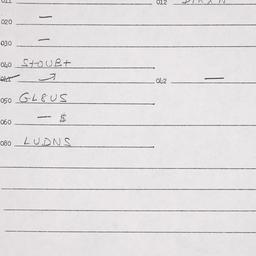 011 012
020 —
030 —
040 StOUBt
041 062 —
050 GL8US
060 — $
080 LUDNS